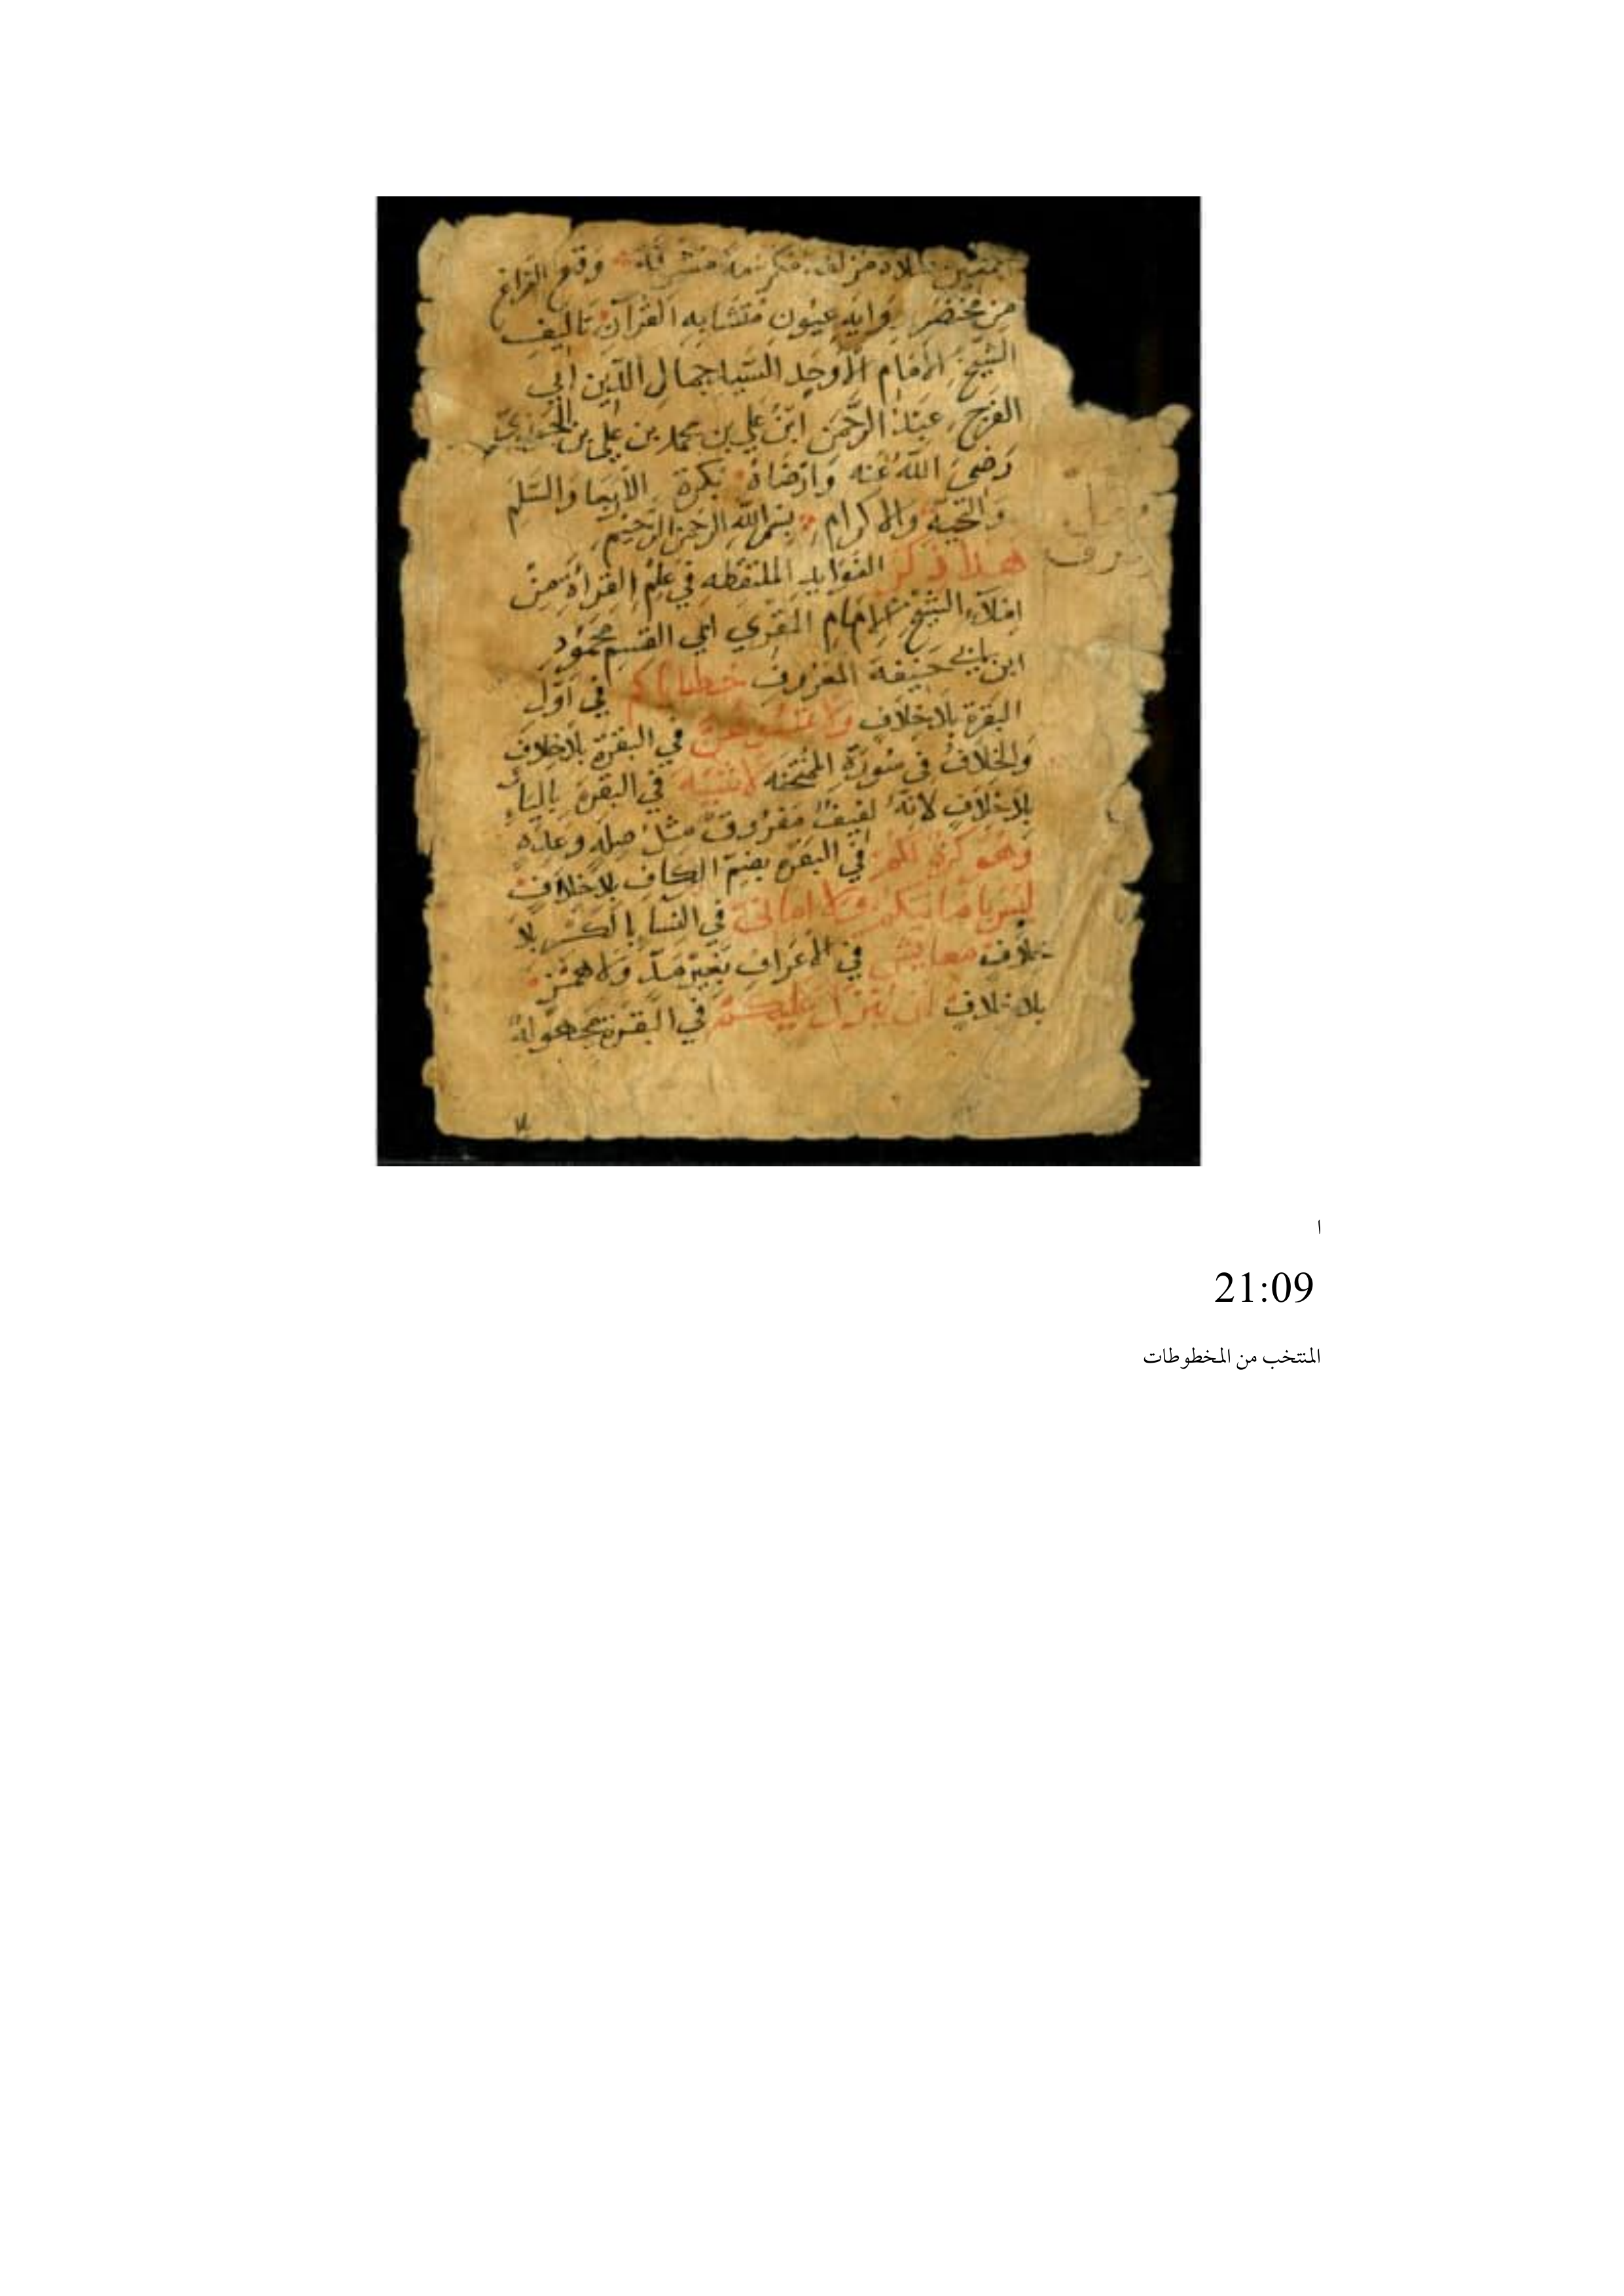 وقع الفراغ
من مختصر وايه عيون متشابه القرآن تاليف
الشيخ الامام الاوحد جمال الدين ابي
الفرج عبد الرحمن ابن علي بن محمد بن علي بن الجوزي
رضي الله عنه وارضاه بكرة الاربعا والسلم
والتحية والاكرام بسم الله الرحمن الرحيم
هذا ذكر الفوايد الملتقطه في علم القرأة من
املاء الشيخ الامام المقري ابي القسم محمود
ابن ابي حنيفة المعروف خطاياكم في اول
البقرة بلا خلاف ولا تمسكوهن في البقرة بلا خلاف
والخلاف في سورة الممتحنه لاشيه في البقرة بالياء
بلا خلاف لانه لفيف مفروق مثل صله وعده
وهو كره لكم في البقره بضم الكاف بلا خلاف
ليس بامانيكم ولا اماني في النسا بالكسر بلا
خلاف معايش في الاعراف بغير مد ولا همز
بلا خلاف ان ينزل عليكم في البقرة مجهولة
ا
21:09
المنتخب من المخطوطات